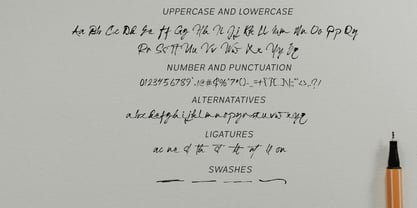 UPPERCASE AND LOWERCASE
Aa Bb Cc Dd Ee Ff Gg Hh Ii Jj Kk Ll Mm Nn Oo Pp Qq
Rr Ss Tt Uu Vv Ww Xx Yy Zz
NUMBER AND PUNCTUATION
0123456789
ALTERNATATIVES
abcdefghijklmnopqrstuvwxyz
LIGATURES
SWASHES